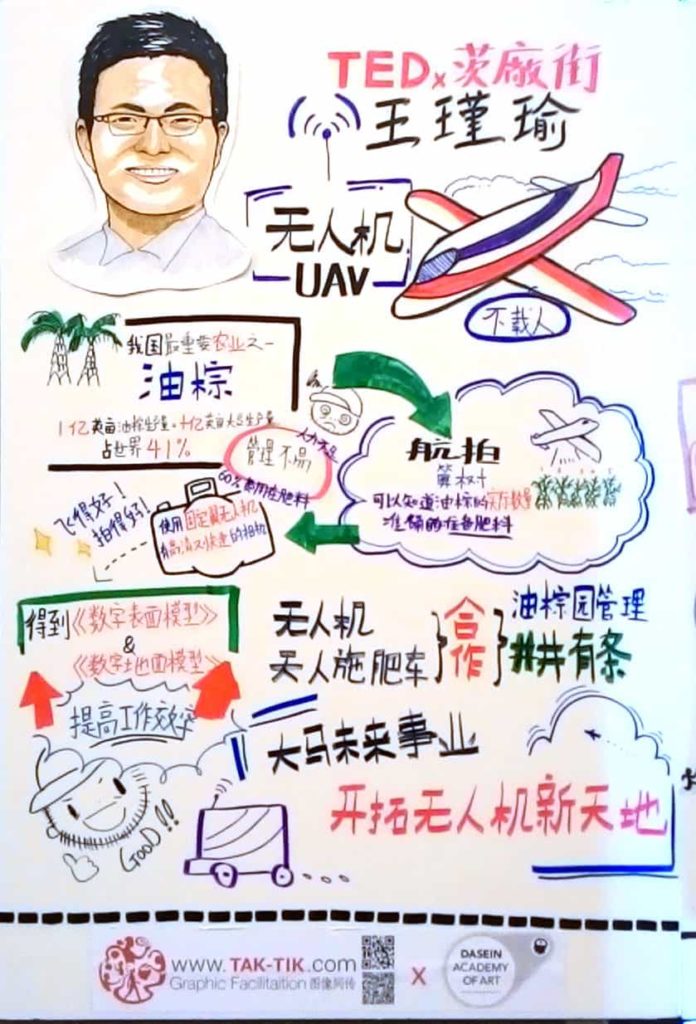 TEDx茨厰街
王瑾瑜
无人机
UAV
不载人
我国最重要农业之一
油棕
占世界41%
管理不易
人力不足
60%费用在肥料
航拍
算树
可以知道油棕的实际数量
准确的准备肥料
飞得好!
拍得好!
使用固定翼无人机
有高清又快速的相机
得到《数字表面模型》
&
《数字地面模型》
提高工作效率
无人机
无人施肥车
合作
油棕园管理
井井有条
大马未来事业
开拓无人机新天地
GOOD!!
www.TAK-TIK.com
Graphic Facilitaition 图像同传
X
DASEIN
ACADEMY
OF ART